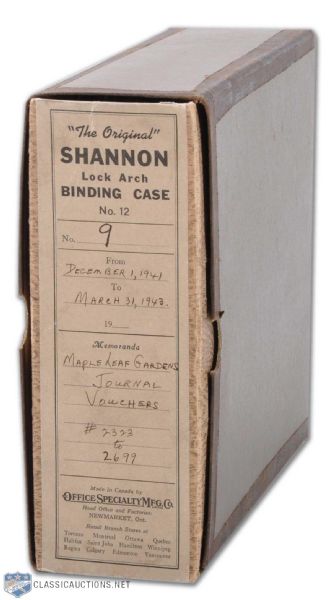 "The Original"
SHANNON
Lock Arch
BINDING CASE
No. 12
No. 9
From
DECEMBER 1, 1941
To
MARCH 31, 1943.
19
Memoranda
MAPLE LEAF GARDENS
JOURNAL
VOUCHERS
# 2323
to
2699
Made in Canada by
OFFICE SPECIALTY MFG. CO.
Head Office and Factories
NEWMARKET, Ont.
Retail Branch Stores at
Toronto Montreal Ottawa Quebec
Halifax Saint John Hamilton Winnipeg
Regina Calgary Edmonton Vancouver
CLASSICAUCTIONS.NET